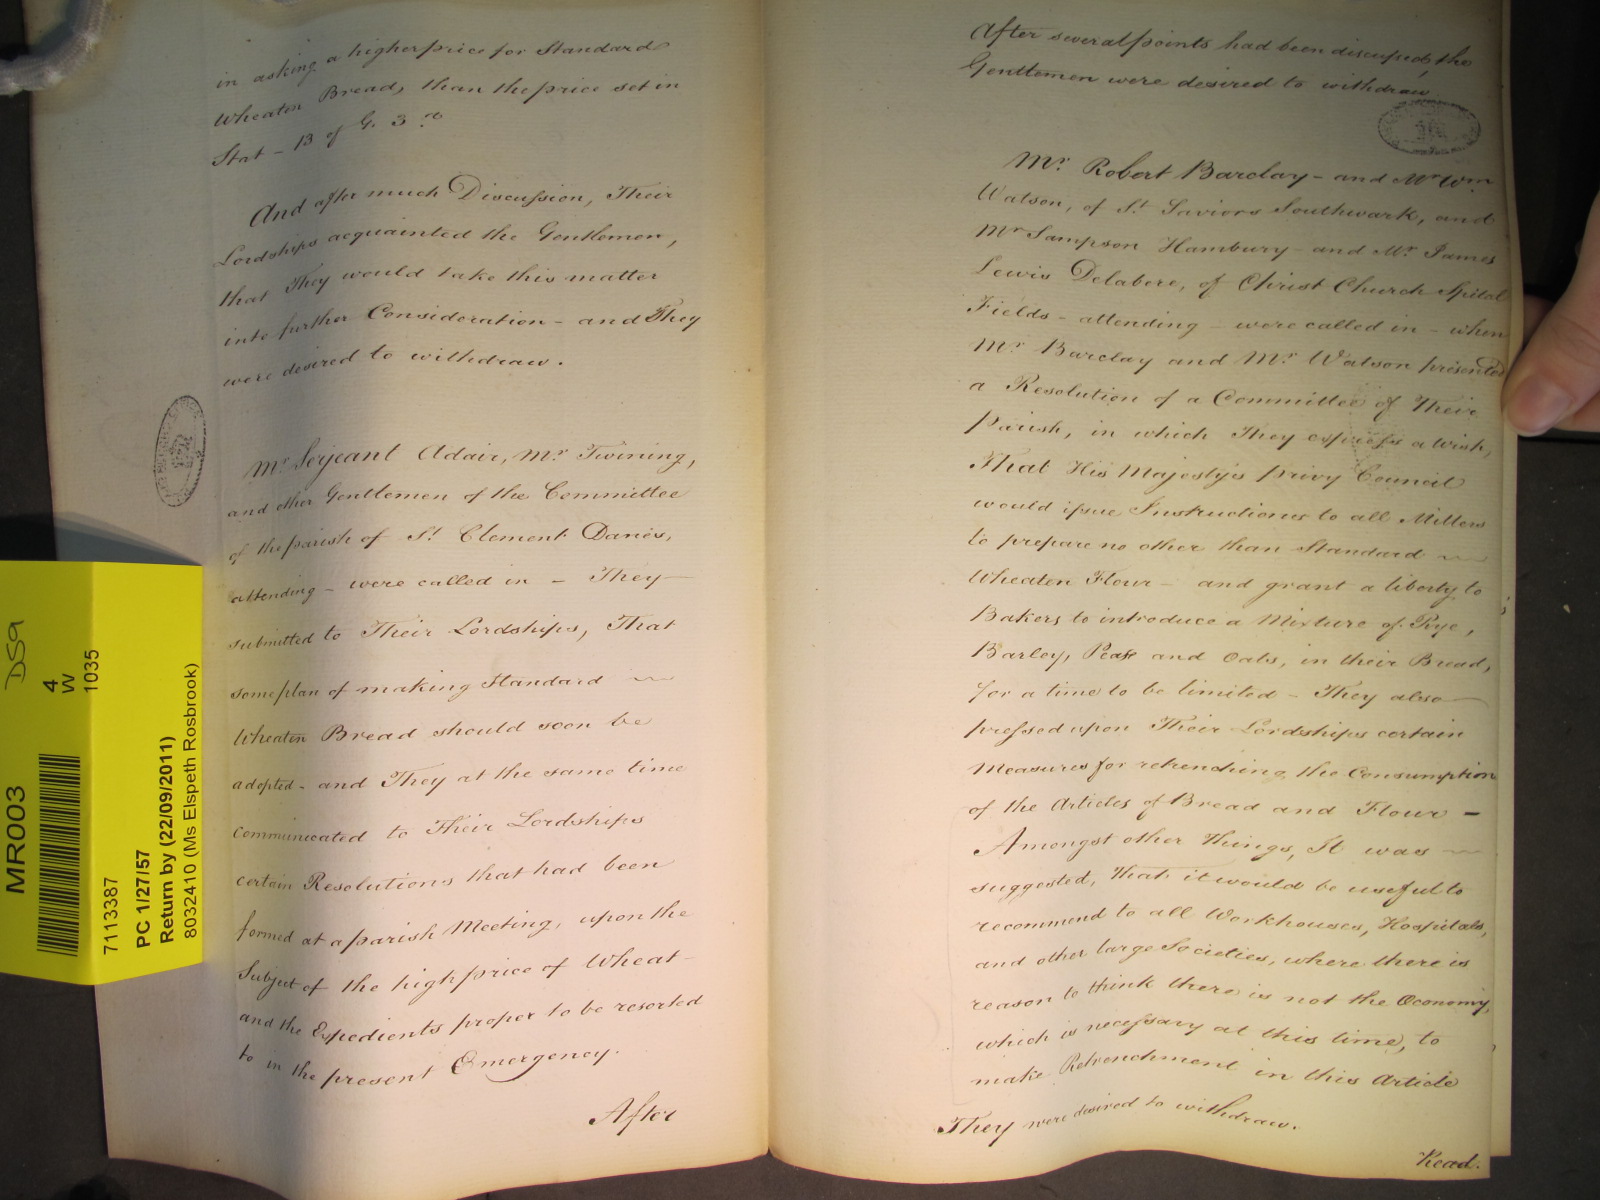 in asking a higher price for Standard
Wheaten Bread, than the price set in
Stat - 13 of G. 3.d
And after much Discussion, Their
Lordships acquainted the Gentlemen,
that They would take this matter
into further Consideration - and They
were desired to withdraw.
Mr. Serjeant Adair, Mr. Twining,
and other Gentlemen of the Committee
of the parish of St. Clement Danes,
attending - were called in - They
submitted to Their Lordships, That
some plan of making Standard
Wheaten Bread should soon be
adopted - and They at the same time
communicated to Their Lordships
certain Resolutions that had been
formed at a parish Meeting, upon the
Subject of the high price of Wheat -
and the Expedients proper to be resorted
to in the present Emergency.
After
After several points had been discussed, the
Gentlemen were desired to withdraw.
Mr. Robert Barclay - and Mr. Wm
Watson, of St. Saviors Southwark, and
Mr. Sampson Hambury - and Mr. James
Lewis Delabere, of Christ Church Spital
Fields - attending - were called in - when
Mr. Barclay and Mr. Watson presented
a Resolution of a Committee of Their
Parish, in which They express a Wish,
That His Majestys privy Council
would issue Instructions to all Millers
to prepare no other than Standard
Wheaten Flour - and grant a liberty to
Bakers to introduce a Mixture of Rye,
Barley, Pease and Oats, in their Bread,
for a time to be limited - They also
pressed upon Their Lordships certain
Measures for retrenching the Consumption
of the Articles of Bread and Flour -
Amongst other things, It was
suggested, That it would be useful to
recommend to all Workhouses, Hospitals,
and other large Societies, where there is
reason to think there is not the Oconomy,
which is necessary at this time, to
make Retrenchment in this Article
They were desired to withdraw.
Read.
MR003
DS9
4
W
1035
7113387
PC 1/27/57
Return by (22/09/2011)
8032410 (Ms Elspeth Rosbrook)